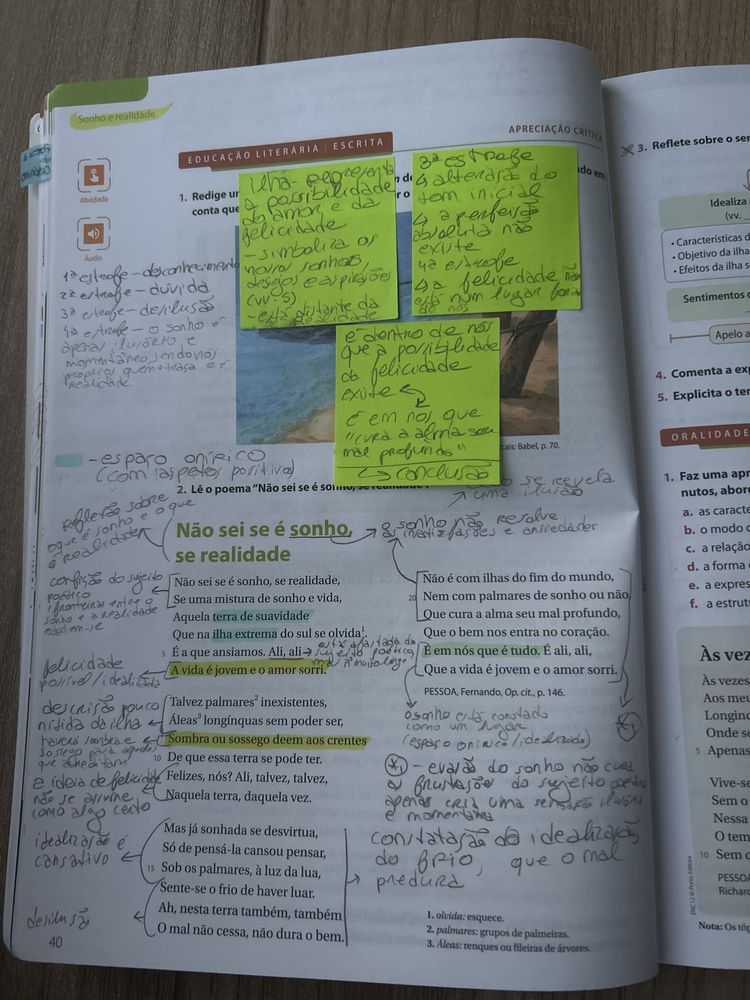 Sonho e realidade
EDUCAÇÃO LITERÁRIA | ESCRITA
APRECIAÇÃO CRÍTICA
Atividade
Áudio
1. Redige
conta que
ilha - representa
a possibilidade
do amor e da
felicidade
- simboliza os
nossos sonhos,
desejos e aspirações
(vv. 5)
- está distante da
realidade
3ª estrofe
↳ alteração do
tom inicial
↳ a perfeição
absoluta não
existe
4ª estrofe
↳ a felicidade não
está num lugar fora
de nós
é dentro de nós
que a possibilidade
da felicidade
existe
É em nós que
"cura a alma seu
mal profundo"
↳ conclusão
1ª estrofe - desconhecimento
2ª estrofe - dúvida
3ª estrofe - desilusão
4ª estrofe - o sonho é
apenas ilusório e
momentâneo, sendo nós
próprios quem traça a
realidade
- espaço onírico
(com aspetos positivos)
cais: Babel, p. 70.
2. Lê o poema "Não sei se é sonho, se realidade".
se revela
uma ilusão
Reflexão sobre
o que é sonho e o que
é realidade
Não sei se é sonho,
se realidade
o sonho não resolve
as insatisfações e ansiedades
confissão do sujeito
poético
fronteiras entre o
sonho e a realidade
Não sei se é sonho, se realidade,
Se uma mistura de sonho e vida,
Aquela terra de suavidade
Que na ilha extrema do sul se olvida¹.
5 É a que ansiamos. Ali, ali
A vida é jovem e o amor sorri.
está afastada do
sujeito poético,
felicidade
possível/idealizada
Talvez palmares² inexistentes,
Áleas³ longínquas sem poder ser,
Sombra ou sossego deem aos crentes
10 De que essa terra se pode ter.
Felizes, nós? Ali, talvez, talvez,
Naquela terra, daquela vez.
descrição pouco
nítida da ilha
haverá sombra e
sossego para aqueles
que acreditam
a ideia de felicidade
não se assume
como algo certo
Mas já sonhada se desvirtua,
Só de pensá-la cansou pensar,
15 Sob os palmares, à luz da lua,
Sente-se o frio de haver luar.
Ah, nesta terra também, também
O mal não cessa, não dura o bem.
idealização é
cansativo
desilusão
Não é com ilhas do fim do mundo,
20 Nem com palmares de sonho ou não,
Que cura a alma seu mal profundo,
Que o bem nos entra no coração.
É em nós que é tudo. É ali, ali,
Que a vida é jovem e o amor sorri.
PESSOA, Fernando, Op. cit., p. 146.
o sonho está conotado
como um lugar
(espaço onírico/idealizado)
*1
*1 - evasão do sonho não cura
a frustração do sujeito poético
apenas cria uma sensação ilusória
e momentânea
constatação da idealização,
do frio, que o mal
predura
1. olvida: esquece.
2. palmares: grupos de palmeiras.
3. Áleas: renques ou fileiras de árvores.
40
3. Reflete sobre o ser
Idealiza
(vv.
• Características d
• Objetivo da ilha
• Efeitos da ilha s
Sentimentos
Apelo a
4. Comenta a exp
5. Explicita o ter
ORALIDADE
1. Faz uma apr
nutos, abor
a. as caracte
b. o modo c
c. a relação
d. a forma
e. a expres
f. a estrut
Às vez
Às vezes
Aos meu
Longinc
Onde se
5 Apenas
Vive-se
Sem o
Nessa
O tem
10 Sem c
PESSOA
Richar
ENC12 © Porto Editora
Nota: Os tóp